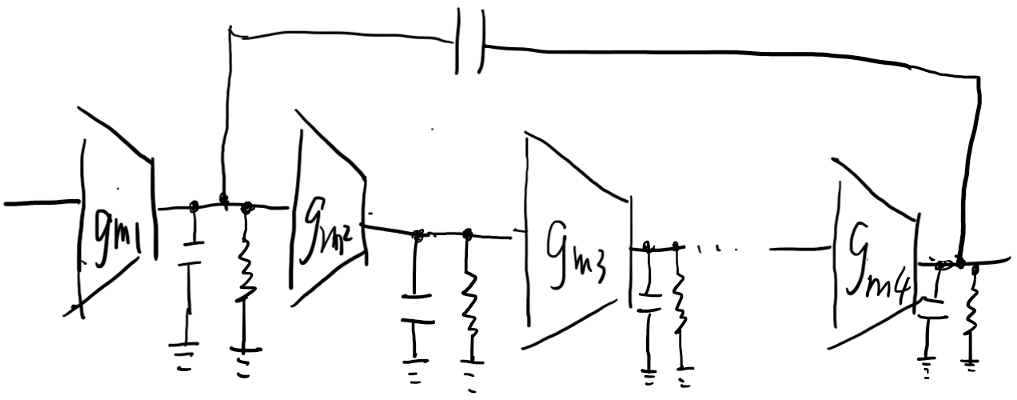 gm1
gm2
gm3
....
gm4